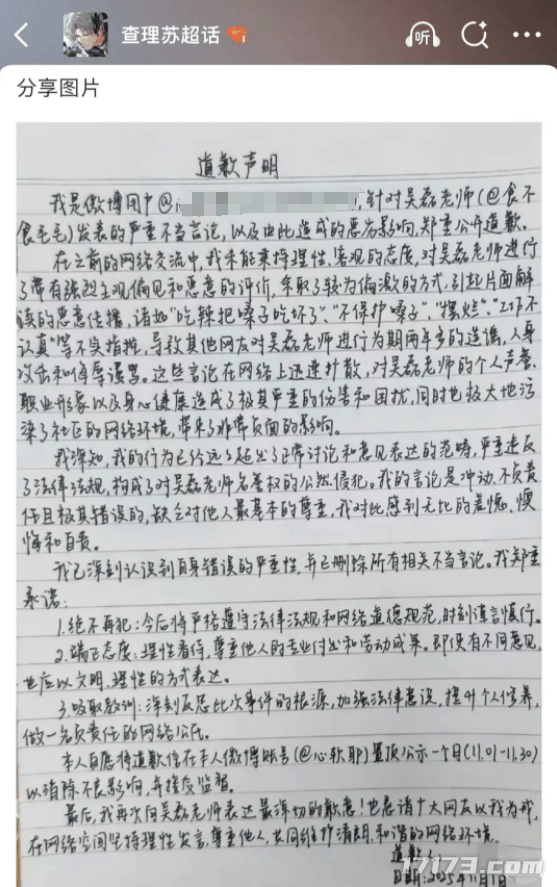 查理苏超话
听
分享图片
道歉声明
我是微博用户@，针对吴磊老师(@食不
食毛毛)发表的严重不当言论，以及由此造成的恶劣影响，郑重公开道歉。
在之前的网络交流中，我未能秉持理性、客观的态度，对吴磊老师进行
了带有强烈主观偏见和恶意的评价，采取了较为偏激的方式，引起片面解
读的恶意传播，诸如"吃辣把嗓子吃坏了"、"不保护嗓子"、"摆烂"、"工作不
认真"等不实指摘，导致其他网友对吴磊老师进行为期两年多的造谣，人身
攻击和侮辱谩骂。这些言论在网络上迅速扩散，对吴磊老师的个人声誉、
职业形象以及身心健康造成了极其严重的伤害和困扰，同时也极大地污
染了社区的网络环境，带来了非常负面的影响。
我深知，我的行为已经远远超出了正常讨论和意见表达的范畴，严重违反
了法律法规，构成了对吴磊老师名誉权的公然侵犯。我的言论是冲动、不负责
任且极其错误的，缺乏对他人最基本的尊重，我对此感到无比的羞愧、懊
悔和自责。
我已深刻认识到自身错误的严重性，并已删除所有相关不当言论。我郑重
承诺：
1.绝不再犯：今后将严格遵守法律法规和网络道德规范，时刻谨言慎行。
2.端正态度：理性看待，尊重他人的专业付出和劳动成果。即便有不同意见，
也应以文明、理性的方式表达。
3.吸取教训：深刻反思此次事件的根源，加强法律意识，提升个人修养，
做一名负责任的网络公民。
本人自愿将道歉信在本人微博账号(@心软耶)置顶公示一个月(11.01-11.30)
以消除不良影响，并接受监督。
最后，我再次向吴磊老师表达最深切的歉意！也恳请广大网友以我为戒，
在网络空间坚持理性发言，尊重他人，共同维护清朗、和谐的网络环境。
道歉人
日期：2025年11月1日
17173.com